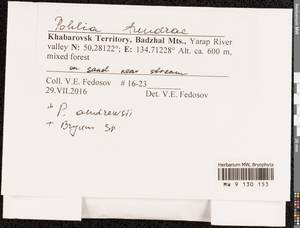 Pohlia tundrae
Khabarovsk Territory, Badzhal Mts., Yarap River
valley N: 50,28122°; E: 134,71228° Alt. ca. 600 m,
mixed forest
on sand near stream
Coll. V.E. Fedosov # 16-23
29.VII.2016 Det. V.E. Fedosov
+ P. andrewsii
+ Bryum sp
Herbarium MW, Bryophyta
MW 9 130 153